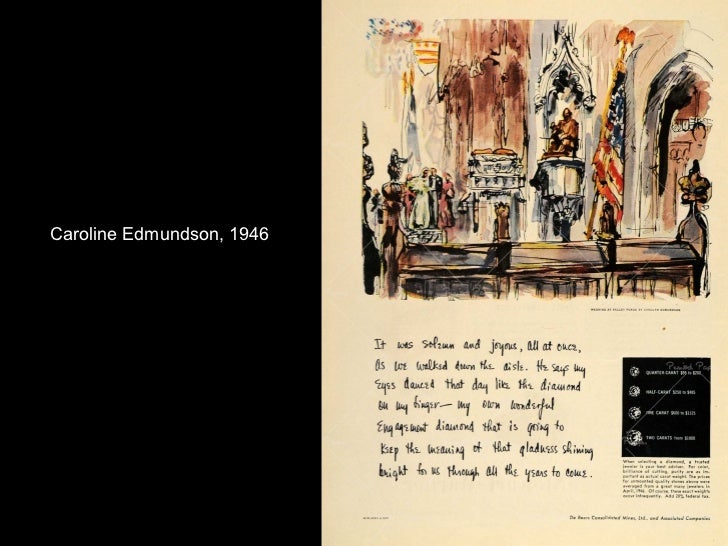 Caroline Edmundson, 1946
WEDDING AT VALLEY FORGE BY CAROLYN EDMUNDSON
It was solemn and joyous, all at once,
as we walked down the aisle. He says my
eyes danced that day like the diamond
on my finger— my own wonderful
engagement diamond that is going to
keep the meaning of that gladness shining
bright for us through all the years to come.
Period Pap
QUARTER-CARAT $95 to $200
HALF-CARAT $250 to $485
ONE CARAT $600 to $1125
TWO CARATS from $1800
When selecting a diamond, a trusted
jeweler is your best adviser. For color,
brilliance of cutting, purity are as im-
portant as actual carat weight. The prices
for unmounted quality stones above were
averaged from a great many jewelers in
April, 1946. Of course, these exact weights
occur infrequently. Add 20% federal tax.
De Beers Consolidated Mines, Ltd., and Associated Companies